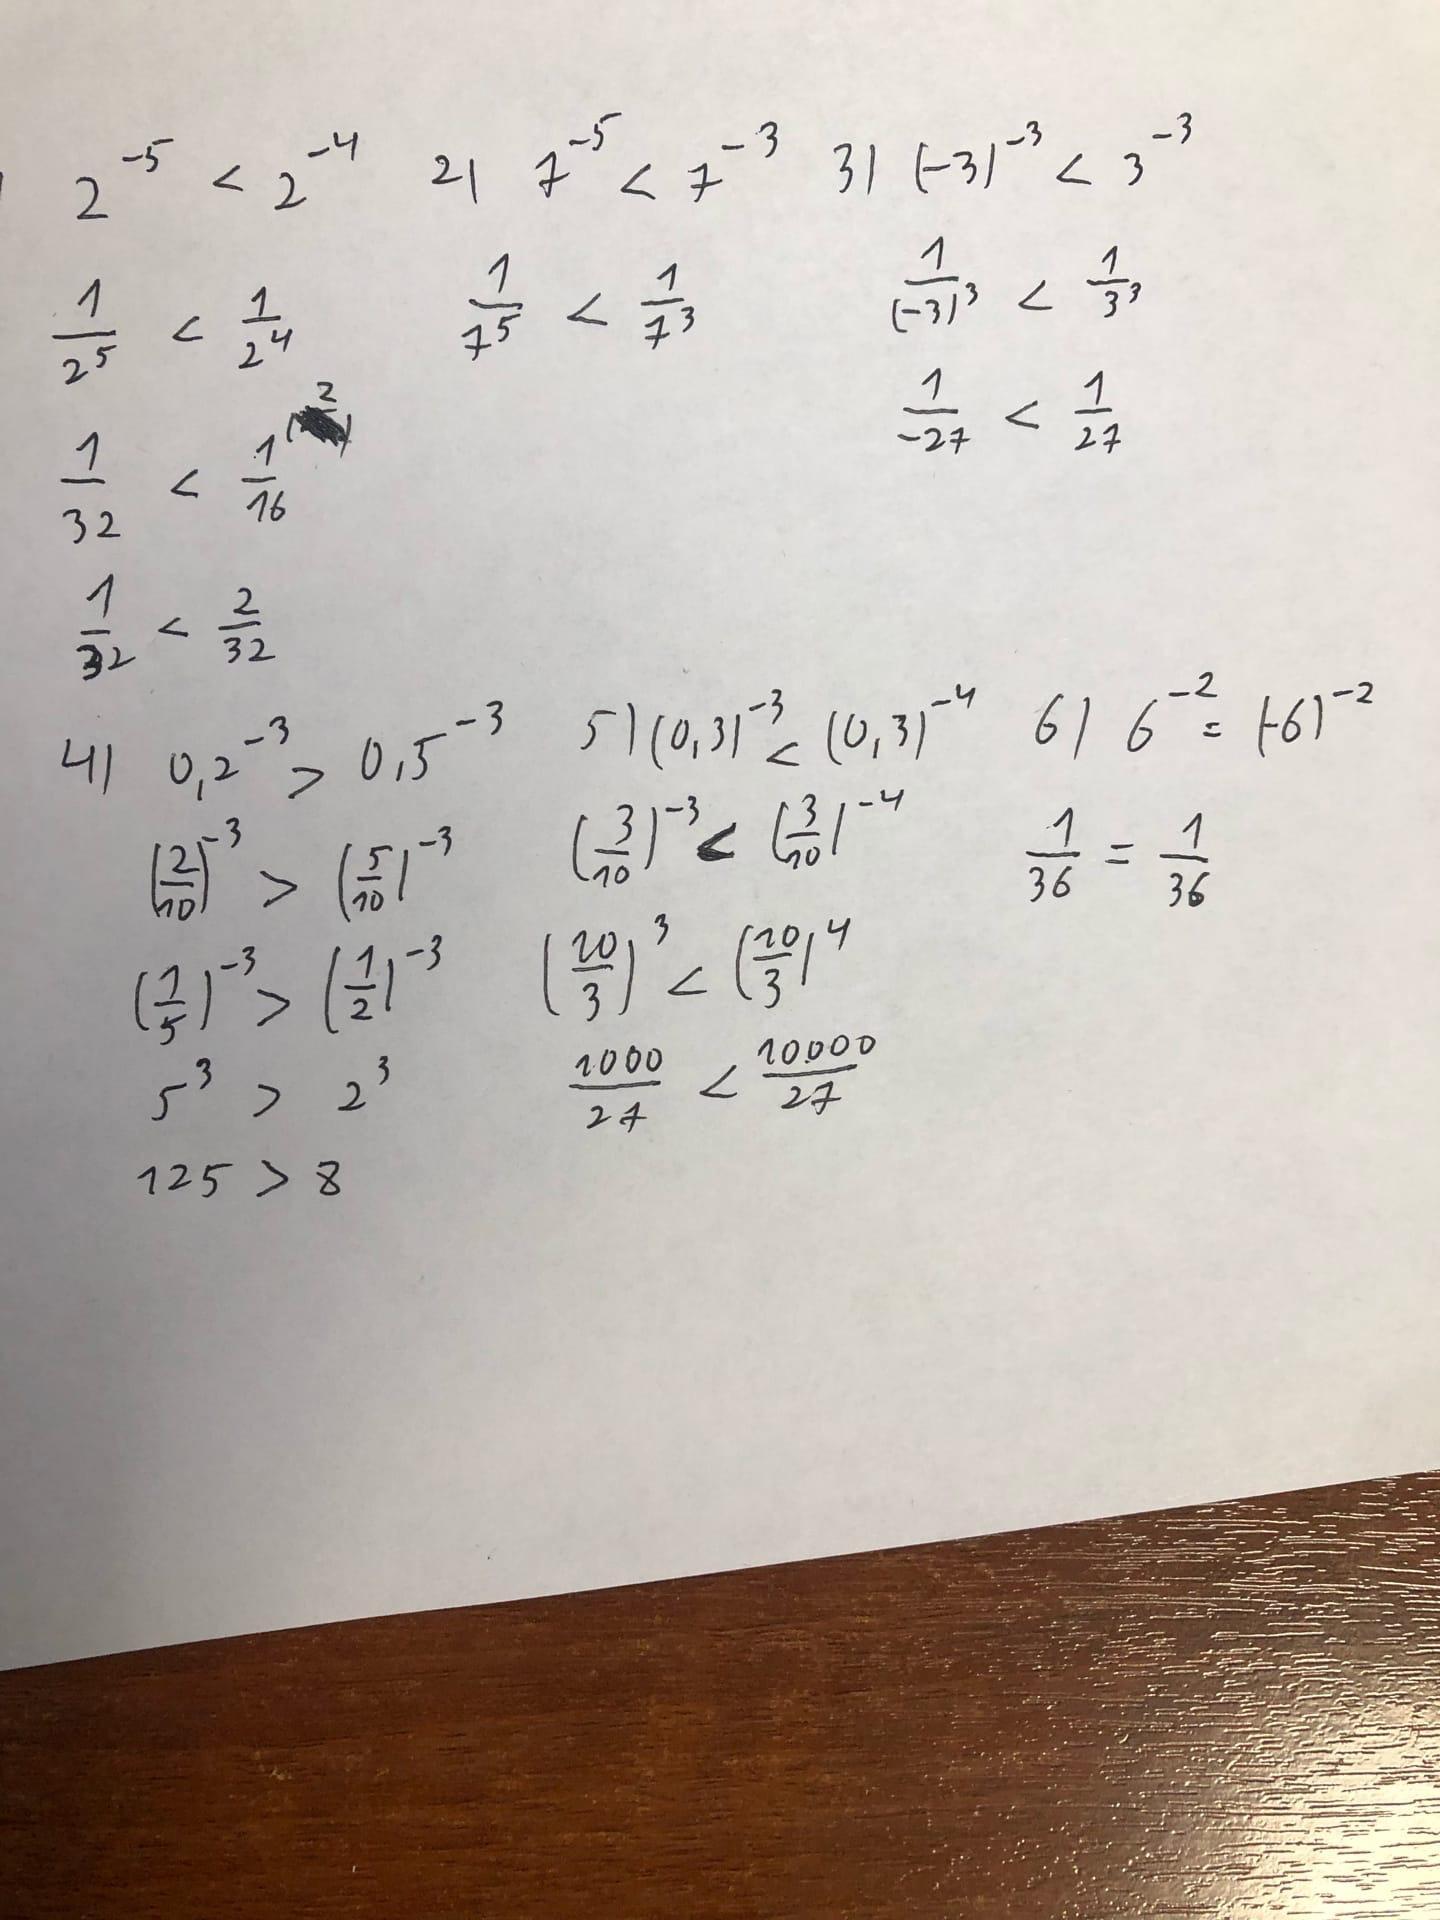 2^-5 < 2^-4   2) 7^-5 < 7^-3   3) (-3)^-3 < 3^-3
1/2^5 < 1/2^4   1/7^5 < 1/7^3   1/(-3)^3 < 1/3^3
1/32 < 1/16 (2   1/-27 < 1/27
1/32 < 2/32
4) 0,2^-3 > 0,5^-3   5) (0,3)^-3 < (0,3)^-4   6) 6^-2 = (-6)^-2
(2/10)^-3 > (5/10)^-3   (3/10)^-3 < (3/10)^-4   1/36 = 1/36
(1/5)^-3 > (1/2)^-3   (10/3)^3 < (10/3)^4
5^3 > 2^3   1000/27 < 10000/27
125 > 8